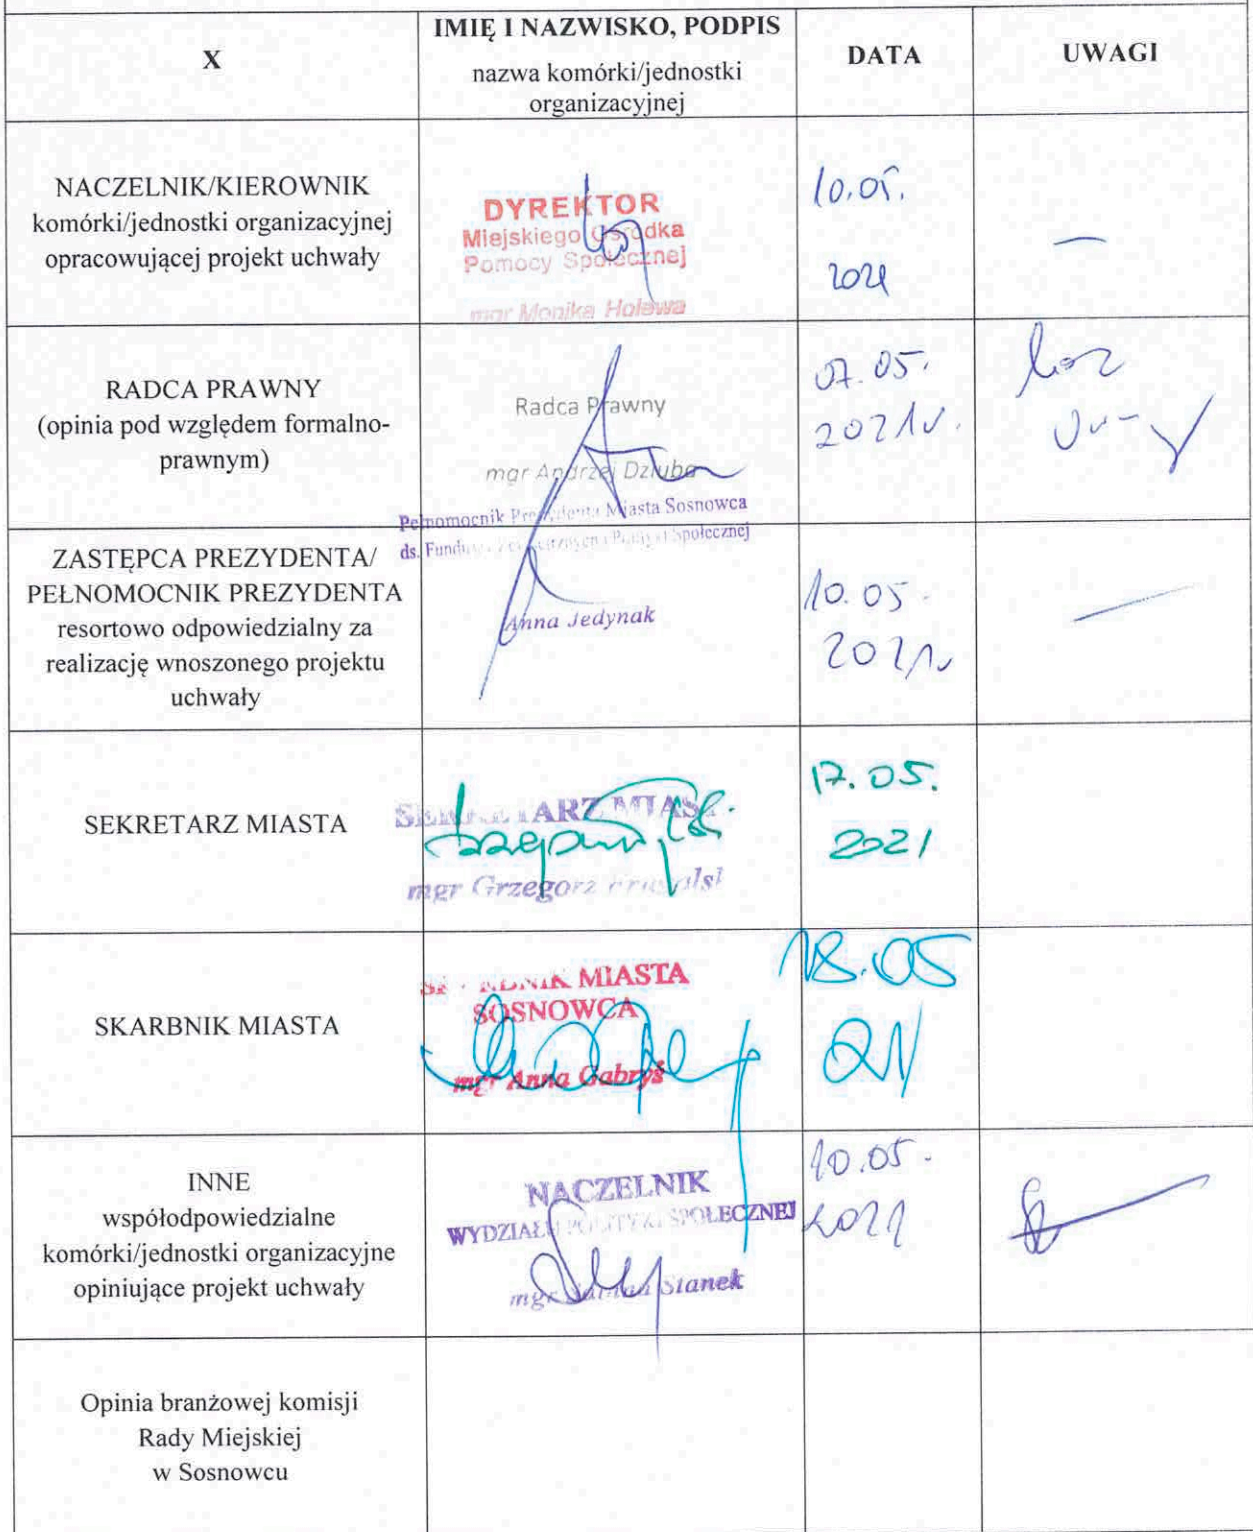 X
IMIĘ I NAZWISKO, PODPIS
nazwa komórki/jednostki
organizacyjnej
DATA
UWAGI
NACZELNIK/KIEROWNIK
komórki/jednostki organizacyjnej
opracowującej projekt uchwały
DYREKTOR
Miejskiego Ośrodka
Pomocy Społecznej
mgr Monika Holewa
10.05.
2021
—
RADCA PRAWNY
(opinia pod względem formalno-
prawnym)
Radca Prawny
mgr Andrzej Dziuba
07.05.
2021r.
ZASTĘPCA PREZYDENTA/
PEŁNOMOCNIK PREZYDENTA
resortowo odpowiedzialny za
realizację wnoszonego projektu
uchwały
Pełnomocnik Prezydenta Miasta Sosnowca
ds. Społecznej
Anna Jedynak
10.05.
2021r
—
SEKRETARZ MIASTA
SEKRETARZ MIASTA
mgr Grzegorz
17.05.
2021
SKARBNIK MIASTA
SKARBNIK MIASTA
SOSNOWCA
mgr Anna Gabryś
18.05
21
INNE
współodpowiedzialne
komórki/jednostki organizacyjne
opiniujące projekt uchwały
NACZELNIK
WYDZIAŁU POLITYKI SPOŁECZNEJ
mgr Stanek
10.05.
2021
Opinia branżowej komisji
Rady Miejskiej
w Sosnowcu